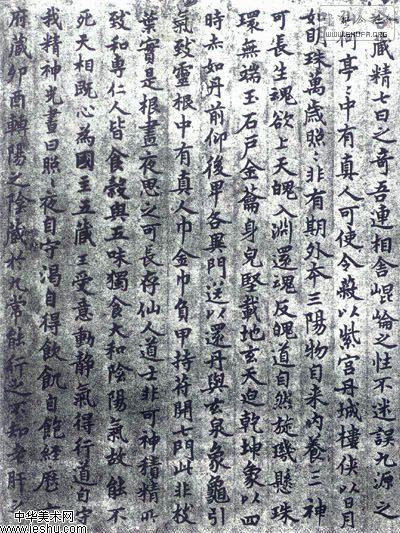 藏精七日之奇吾連相舍崐崘之性不迷誤九源之
山何亭〻中有真人可使令蔽以紫宫丹城樓俠以日月
如明珠萬歲照〻非有期外本三陽物自来内養三神
可長生魂欲上天魄入淵還魂反魄道自然旋璣懸珠
環無端玉石戶金籥身皃堅載地玄天迫乾坤象以四
時赤如丹前仰後卑各異門送以還丹與玄泉象龜引
氣致靈根中有真人巾金巾負甲持符開七門此非枝
葉實是根晝夜思之可長存仙人道士非可神積精所
致和專仁人皆食穀與五味獨食大和陰陽氣故能不
死天相既心為國主五藏王受意動静氣得行道自守
我精神光晝日照〻夜自守渴自得飲飢自飽經歷
府藏卯酉轉陽之陰藏於九常能行之不知老肝
中华美术网